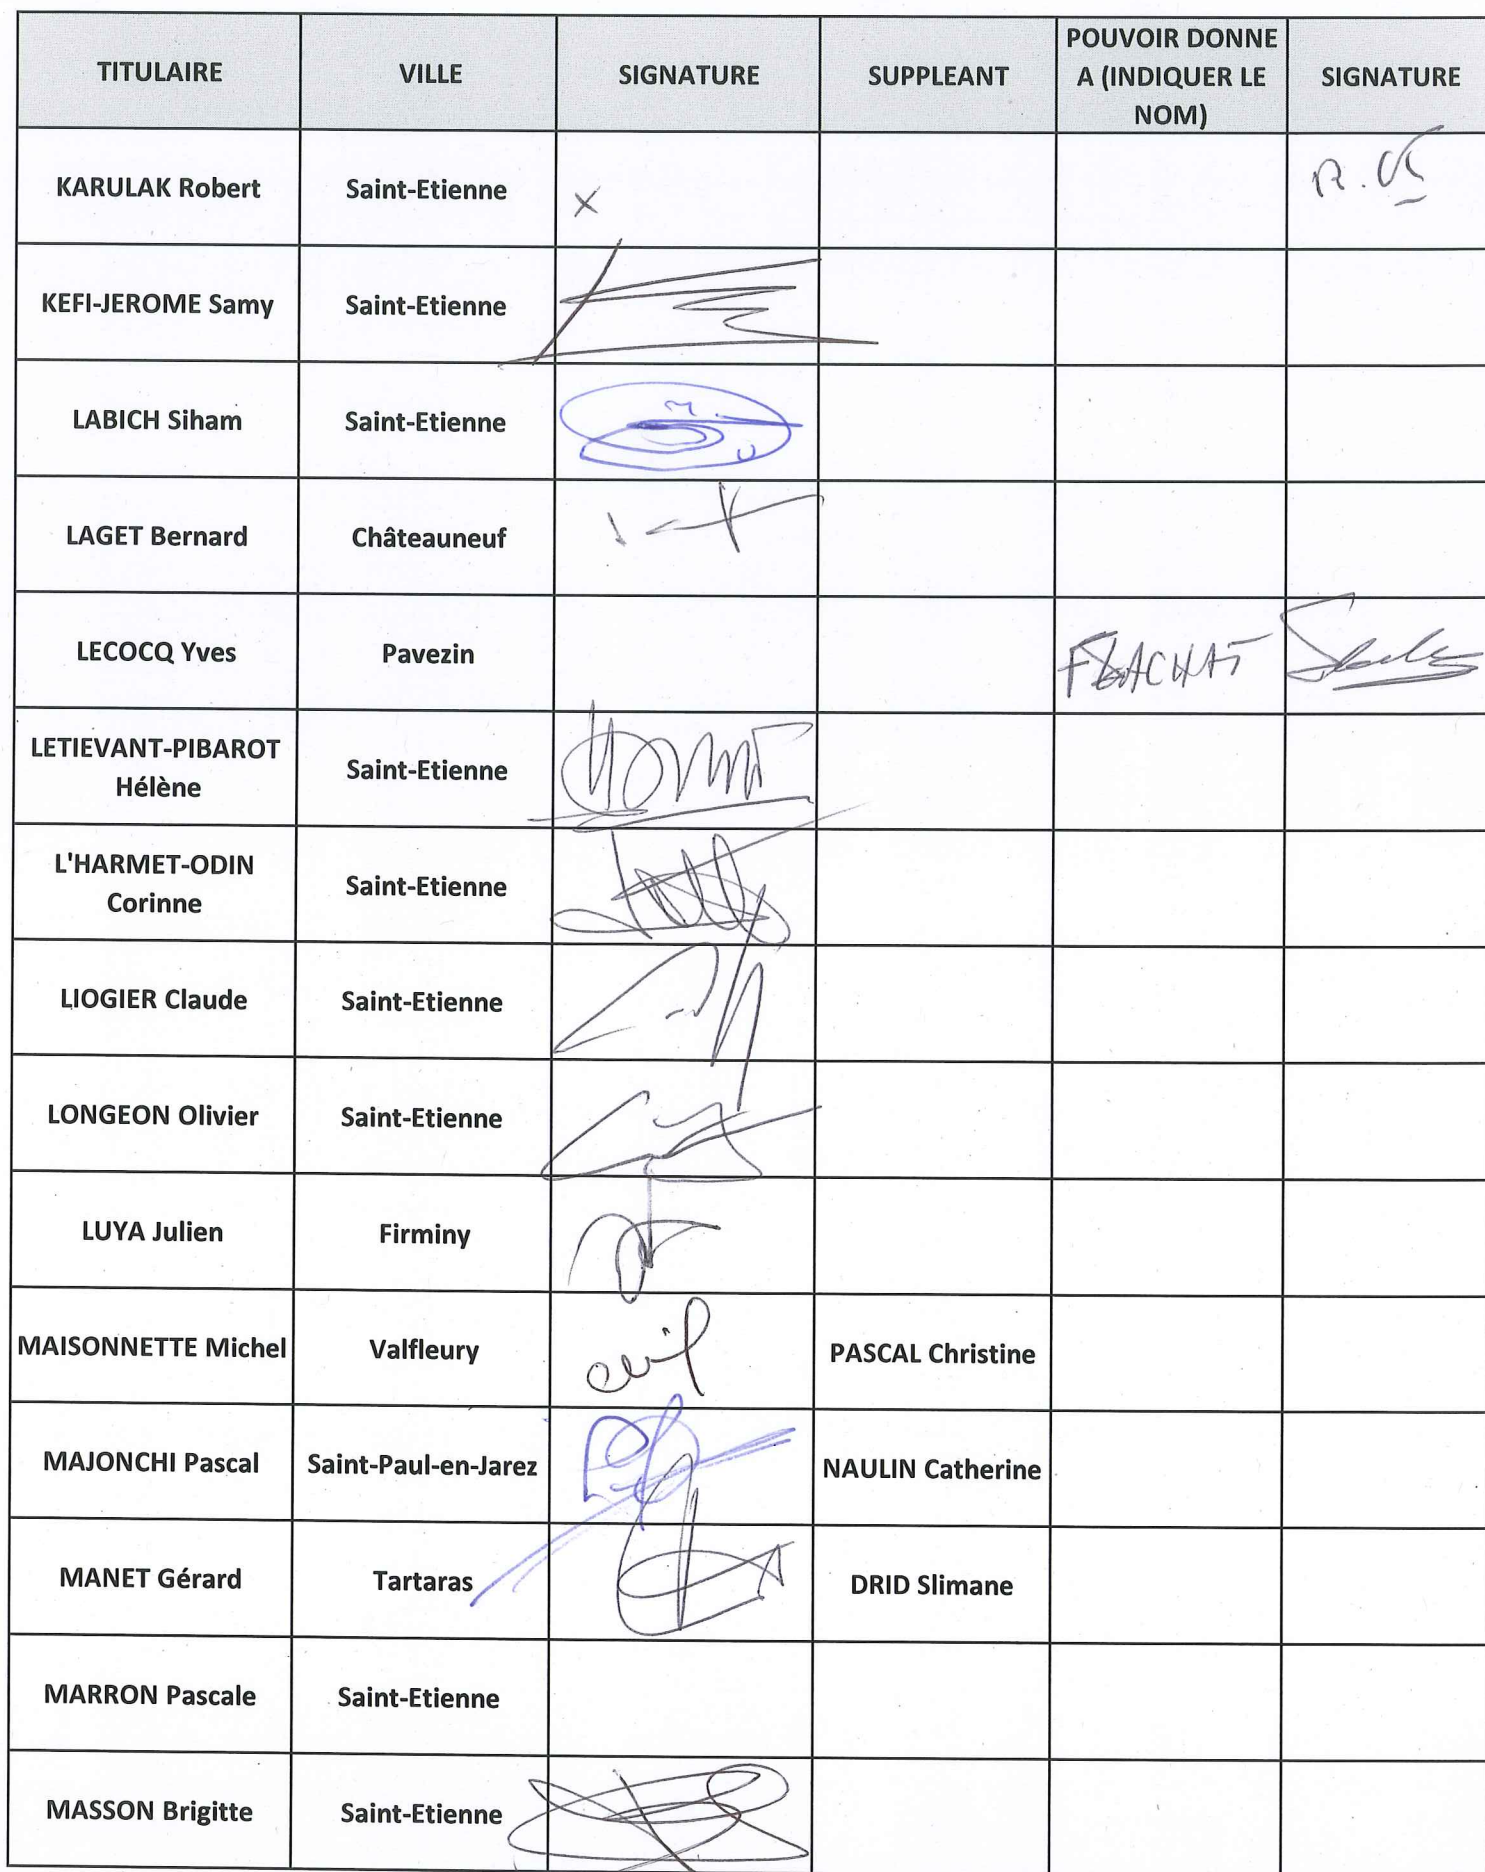 TITULAIRE VILLE SIGNATURE SUPPLEANT POUVOIR DONNE A (INDIQUER LE NOM) SIGNATURE
KARULAK Robert Saint-Etienne X
KEFI-JEROME Samy Saint-Etienne
LABICH Siham Saint-Etienne
LAGET Bernard Châteauneuf
LECOCQ Yves Pavezin FLACHAT
LETIEVANT-PIBAROT Hélène Saint-Etienne
L'HARMET-ODIN Corinne Saint-Etienne
LIOGIER Claude Saint-Etienne
LONGEON Olivier Saint-Etienne
LUYA Julien Firminy
MAISONNETTE Michel Valfleury PASCAL Christine
MAJONCHI Pascal Saint-Paul-en-Jarez NAULIN Catherine
MANET Gérard Tartaras DRID Slimane
MARRON Pascale Saint-Etienne
MASSON Brigitte Saint-Etienne